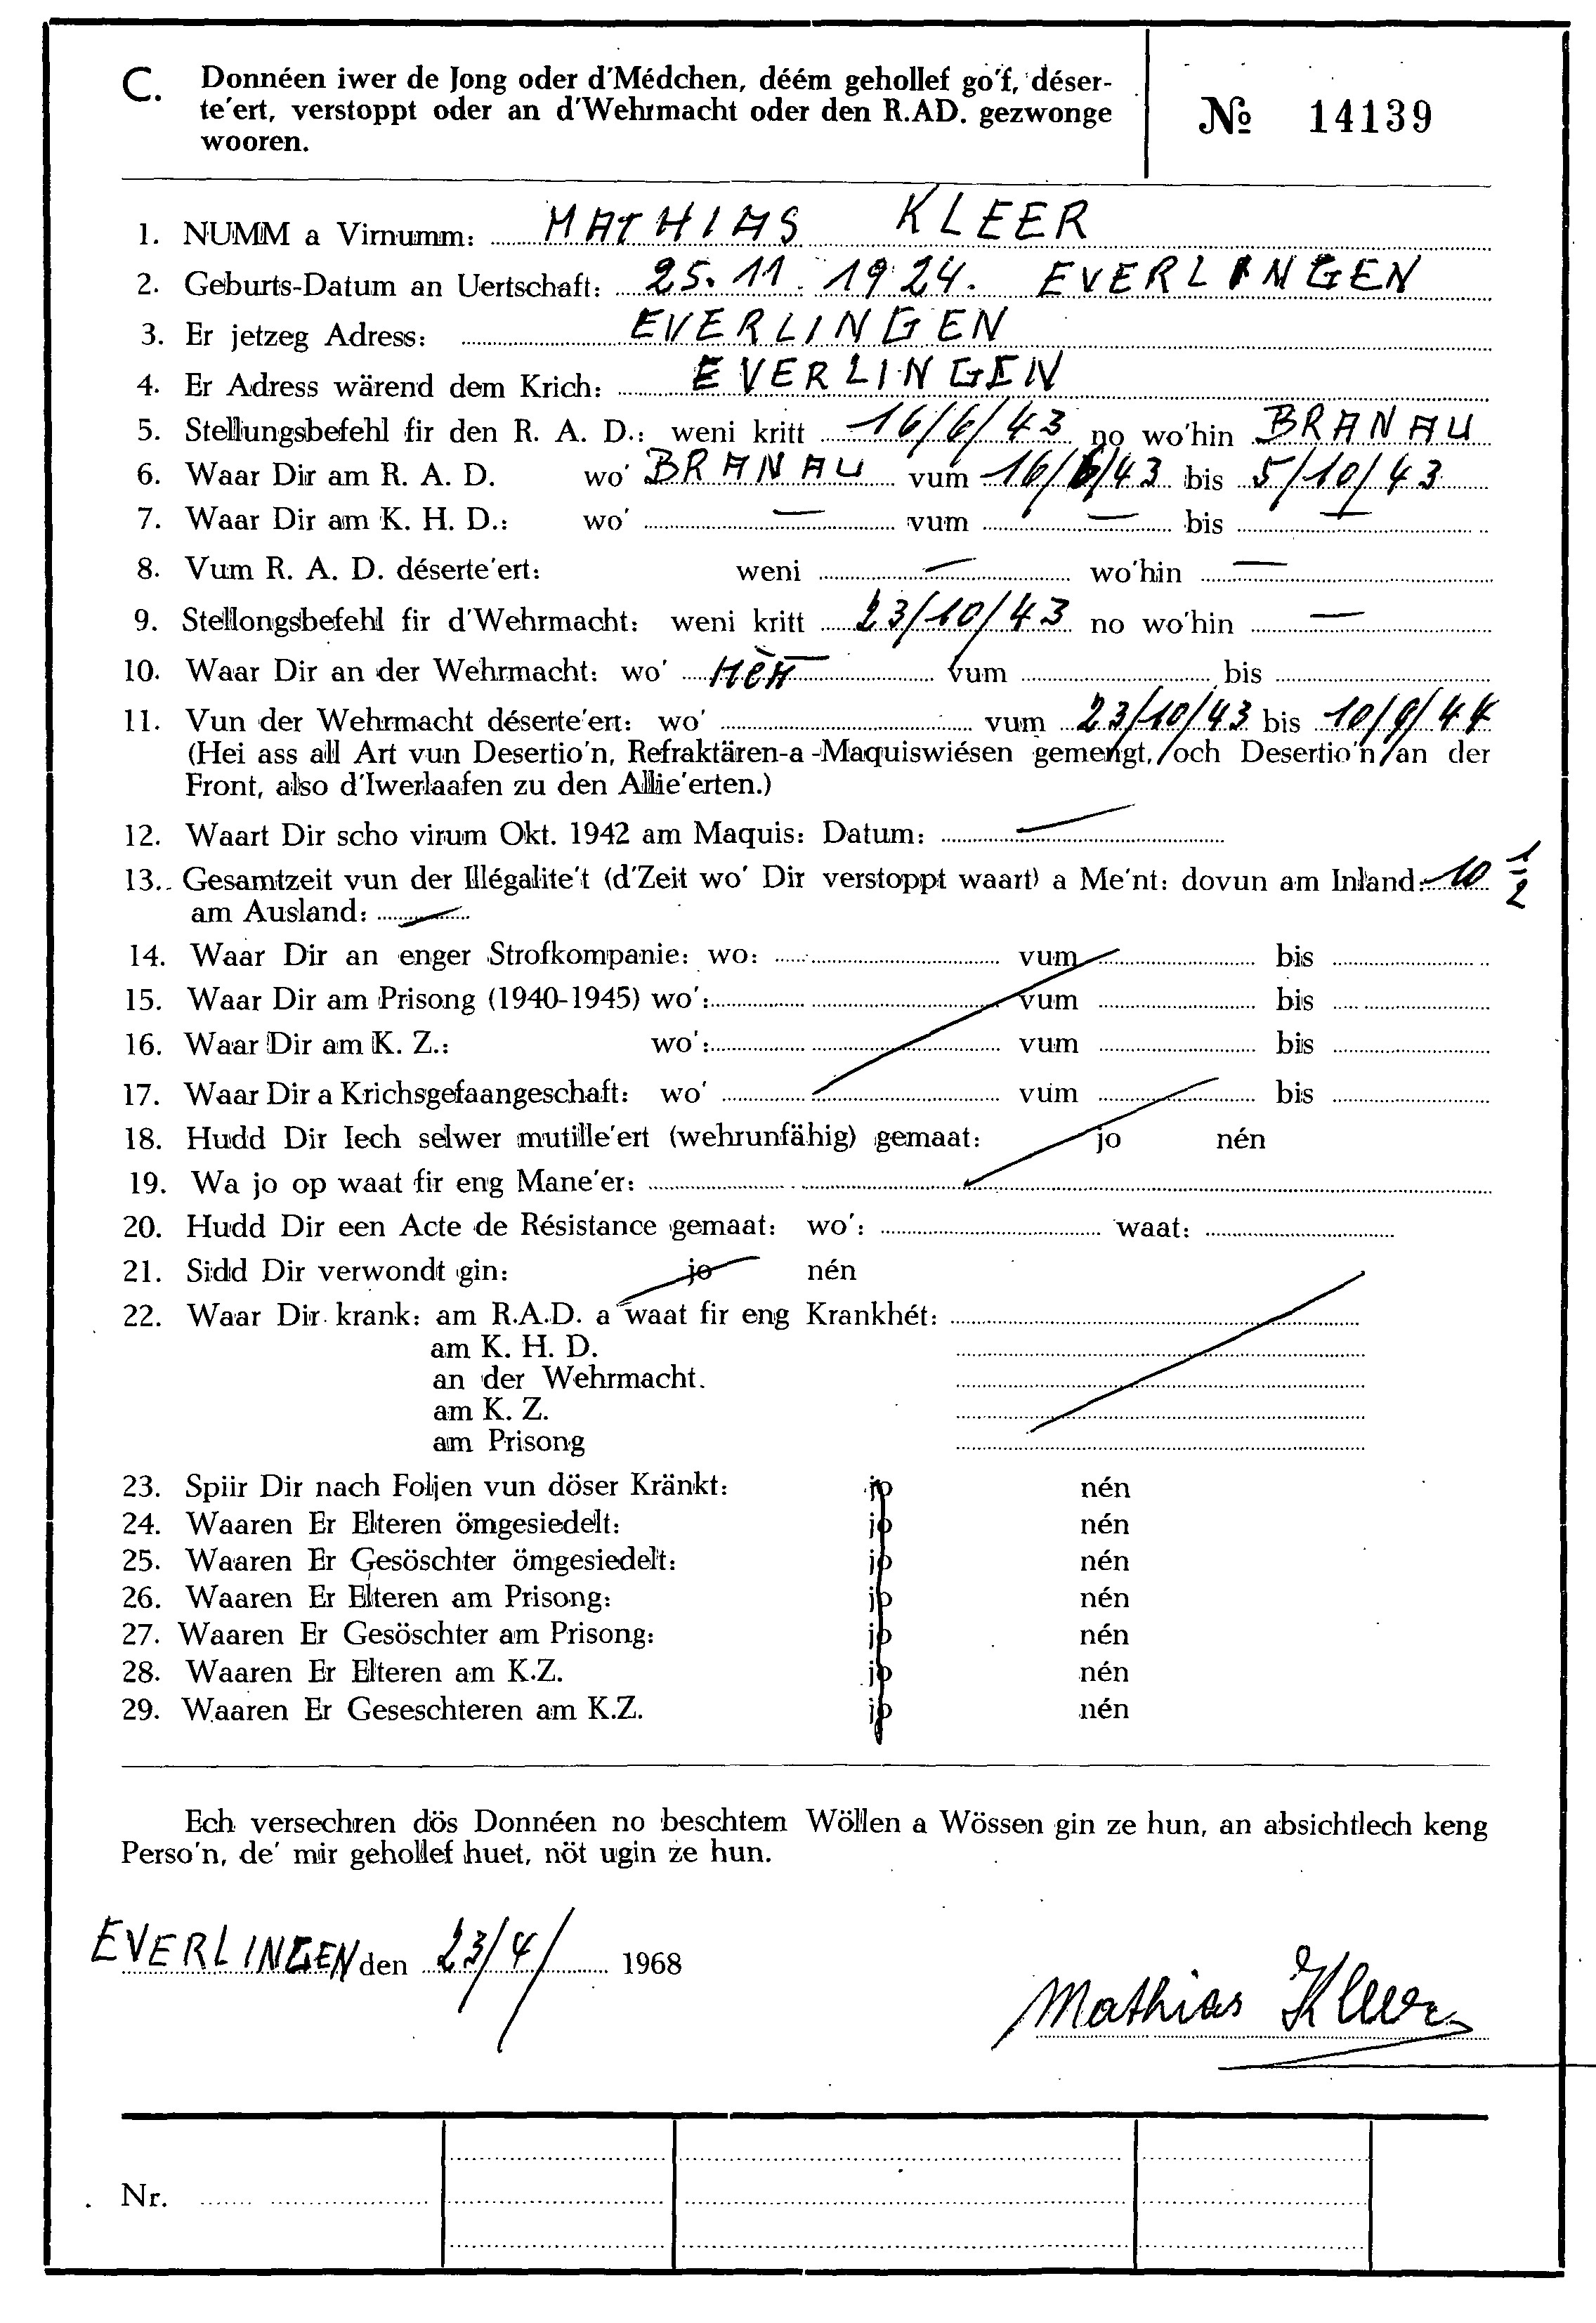 C. Donnéen iwer de Jong oder d'Médchen, déém gehollef go'f, déser-
te'ert, verstoppt oder an d'Wehrmacht oder den R.AD. gezwonge
wooren.
№ 14139
1. NUMM a Virnumm: MATHIAS KLEER
2. Geburts-Datum an Uertschaft: 25.11.1924. EVERLINGEN
3. Er jetzeg Adress: EVERLINGEN
4. Er Adress wärend dem Krich: EVERLINGEN
5. Stellungsbefehl fir den R. A. D.: weni kritt 16/6/43 no wo'hin BRANAU
6. Waar Dir am R. A. D. wo' BRANAU vum 16/6/43 bis 5/10/43
7. Waar Dir am K. H. D.: wo' — vum — bis —
8. Vum R. A. D. déserte'ert: weni — wo'hin —
9. Stellongsbefehl fir d'Wehrmacht: weni kritt 23/10/43 no wo'hin —
10. Waar Dir an der Wehrmacht: wo' vum bis
11. Vun der Wehrmacht déserte'ert: wo' vum 23/10/43 bis 10/9/44
(Hei ass all Art vun Desertio'n, Refraktären-a-Maquiswiésen gemengt, och Desertio'n an der
Front, also d'Iwerlaafen zu den Allie'erten.)
12. Waart Dir scho virum Okt. 1942 am Maquis: Datum: —
13. Gesamtzeit vun der Illégalite't (d'Zeit wo' Dir verstoppt waart) a Me'nt: dovun am Inland: 10 1/2
am Ausland: —
14. Waar Dir an enger Strofkompanie: wo: vum bis
15. Waar Dir am Prisong (1940-1945) wo': vum bis
16. Waar Dir am K. Z.: wo': vum bis
17. Waar Dir a Krichsgefaangeschaft: wo' vum bis
18. Hudd Dir Iech selwer mutille'ert (wehrunfähig) gemaat: jo nén
19. Wa jo op waat fir eng Mane'er:
20. Hudd Dir een Acte de Résistance gemaat: wo': waat:
21. Sidd Dir verwondt gin: jo nén
22. Waar Dir krank: am R.A.D. a waat fir eng Krankhét:
am K. H. D.
an der Wehrmacht.
am K. Z.
am Prisong
23. Spiir Dir nach Foljen vun döser Kränkt: jo nén
24. Waaren Er Elteren ömgesiedelt: jo nén
25. Waaren Er Gesöschter ömgesiedelt: jo nén
26. Waaren Er Elteren am Prisong: jo nén
27. Waaren Er Gesöschter am Prisong: jo nén
28. Waaren Er Elteren am K.Z. jo nén
29. Waaren Er Geseschteren am K.Z. jo nén
Ech versechren dös Donnéen no beschtem Wöllen a Wössen gin ze hun, an absichtlech keng
Perso'n, de' mir gehollef huet, nöt ugin ze hun.
EVERLINGEN den 23/4/ 1968
Mathias Kleer
Nr.